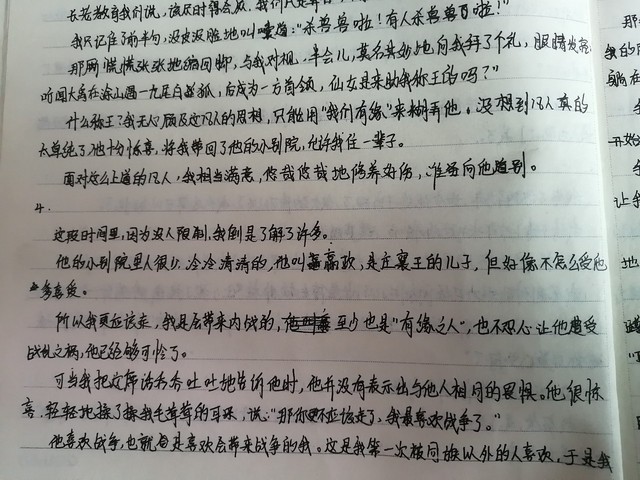 长老教育我们说,该认时得会认。我们只是
我只记住了前半句,没皮没脸地叫嚷道:"杀兽兽啦!有人杀兽兽了啦!"
那厮慌慌张张地缩回脚,与我对视,半会儿,莫名其妙地向我拜了个礼,眼睛发亮:
听闻大禹在涂山遇一九尾白狐,后成为一方首领,仙女是来助我称王的吗?"
什么称王?我无心顾及这凡人的思想,只能用"我们有缘"来糊弄他。没想到凡人真的
太单纯了,他十分惊喜,将我带回了他的小别院,允许我住一辈子。
面对这么上道的凡人,我相当满意,悠哉悠哉地修养好伤,准备向他道别。
4.
这段时间里,因为没人限制,我倒是了解了许多。
他的小别院里人很少,冷冷清清的,他叫嬴腐欢,是庄襄王的儿子,但好像不怎么受他
多喜爱。
所以我更应该走,我是会带来内战的,至少也是"有缘之人",也不忍心让他遭受
战乱之祸,他已经够可怜了。
可当我把这席话吞吞吐吐地告诉他时,他并没有表示出与他人相同的畏惧。他很惊
喜,轻轻地揉了揉我毛茸茸的耳朵,说:"那你更不应该走了,我最喜欢战争了。"
他喜欢战争,也就是喜欢会带来战争的我。这是我第一次被同族以外的人喜欢,于是我
那
我的
躺在
开始
让我
地
"